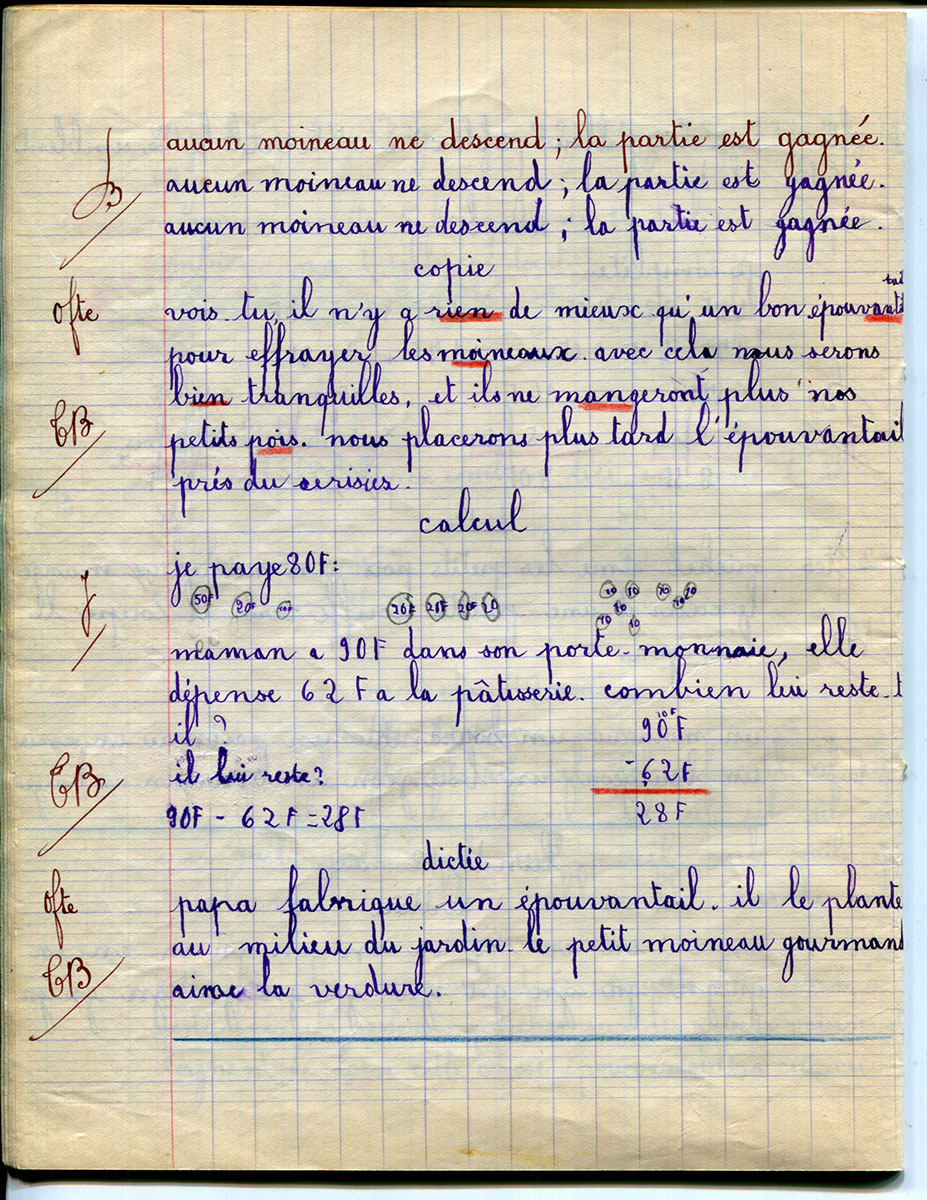 aucun moineau ne descend ; la partie est gagnée.
B aucun moineau ne descend ; la partie est gagnée.
aucun moineau ne descend ; la partie est gagnée.
copie
0fte vois-tu, il n'y a rien de mieux qu'un bon épouvantail
pour effrayer les moineaux. avec cela nous serons
bien tranquilles, et ils ne mangeront plus nos
TB petits pois. nous placerons plus tard l'épouvantail
prés du cerisier.
calcul
je paye 80F:
j 50F 20F 10F 20F 20F 20F 20 10 10 10 10 10 10 10 10
maman a 90F dans son porte-monnaie, elle
dépense 62F a la pâtisserie. combien lui reste-t
il ? 90F 10F
TB il lui reste? - 62F
90F - 62F = 28F 28F
dictée
0fte papa fabrique un épouvantail. il le plante
au milieu du jardin. le petit moineau gourmand
TB aime la verdure.